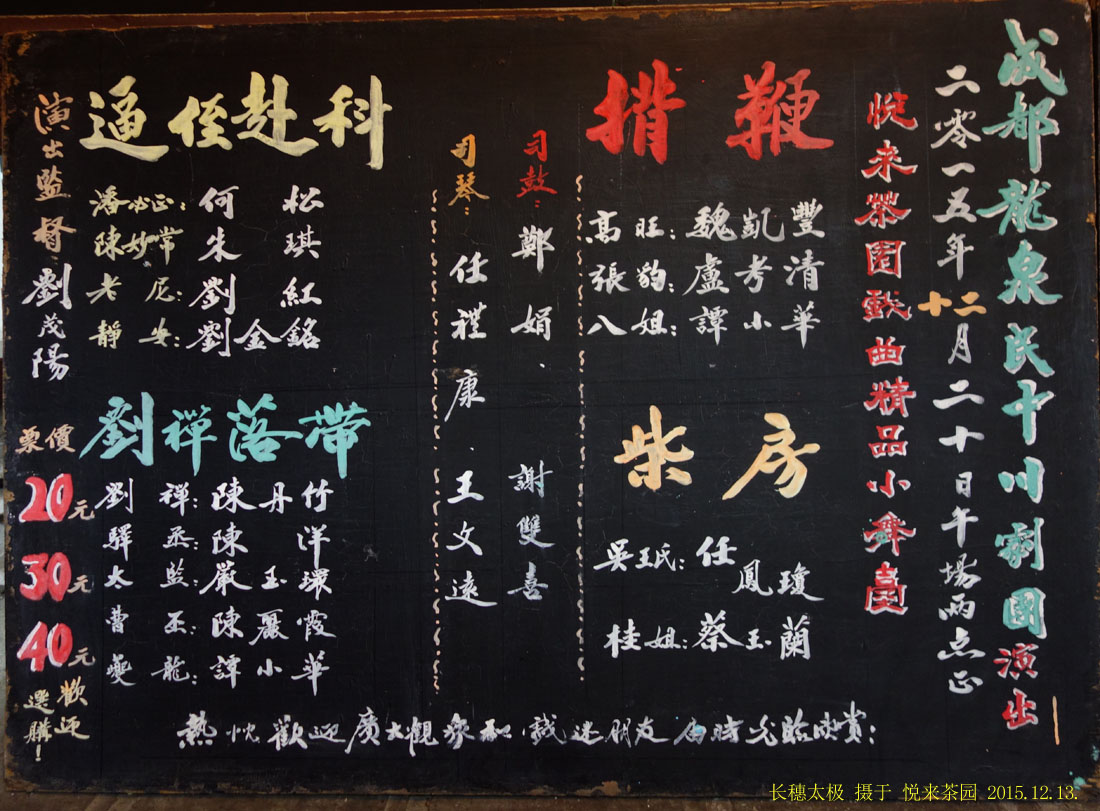 成都龍泉民干川剧團演出
二零一五年十二月二十日午場兩点正
悅来茶园戲曲精品小舞臺
揹鞭
高旺：魏凱豐
張豹：盧考清
八姐：譚小華
柴房
吳王氏：任鳳瓊
桂姐：蔡玉蘭
司鼓：鄭娟．謝雙喜
司琴：任禮康．王文遠
逼侄赴科
潘必正：何松
陳妙常朱琪
老尼：劉紅
靜安：劉金銘
劉禪落帶
劉禪：陳丹竹
驛丞：陳洋
太監：嚴玉環
曹丕：陳麗霞
夔龍：譚小華
演出監督：劉茂陽
票價
20元
30元
40元
歡迎選購！
熱忱歡迎廣大觀衆和戲迷朋友届時光臨欣賞：
长穗太极 摄于 悦来茶园 2015.12.13.